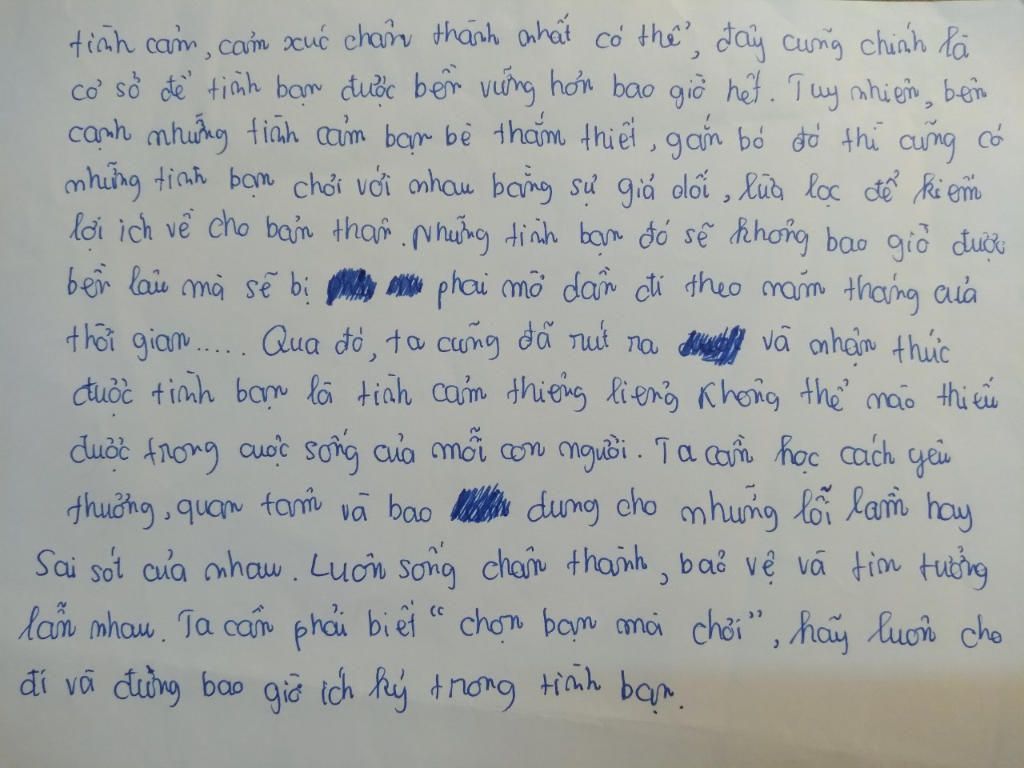 tình cảm, cảm xúc chân thành nhất có thể, đây cũng chính là
cơ sở để tình bạn được bền vững hơn bao giờ hết. Tuy nhiên, bên
cạnh những tình cảm bạn bè thắm thiết, gắn bó đó thì cũng có
những tình bạn chơi với nhau bằng sự giả dối, lừa lọc để kiếm
lợi ích về cho bản thân. Những tình bạn đó sẽ không bao giờ được
bền lâu mà sẽ bị phai mờ dần đi theo năm tháng của
thời gian..... Qua đó, ta cũng đã rút ra và nhận thức
được tình bạn là tình cảm thiêng liêng không thể nào thiếu
được trong cuộc sống của mỗi con người. Ta cần học cách yêu
thương, quan tâm và bao dung cho những lỗi lầm hay
Sai sót của nhau. Luôn sống chân thành, bảo vệ và tin tưởng
lẫn nhau. Ta cần phải biết "chọn bạn mà chơi", hãy luôn cho
đi và đừng bao giờ ích kỷ trong tình bạn.